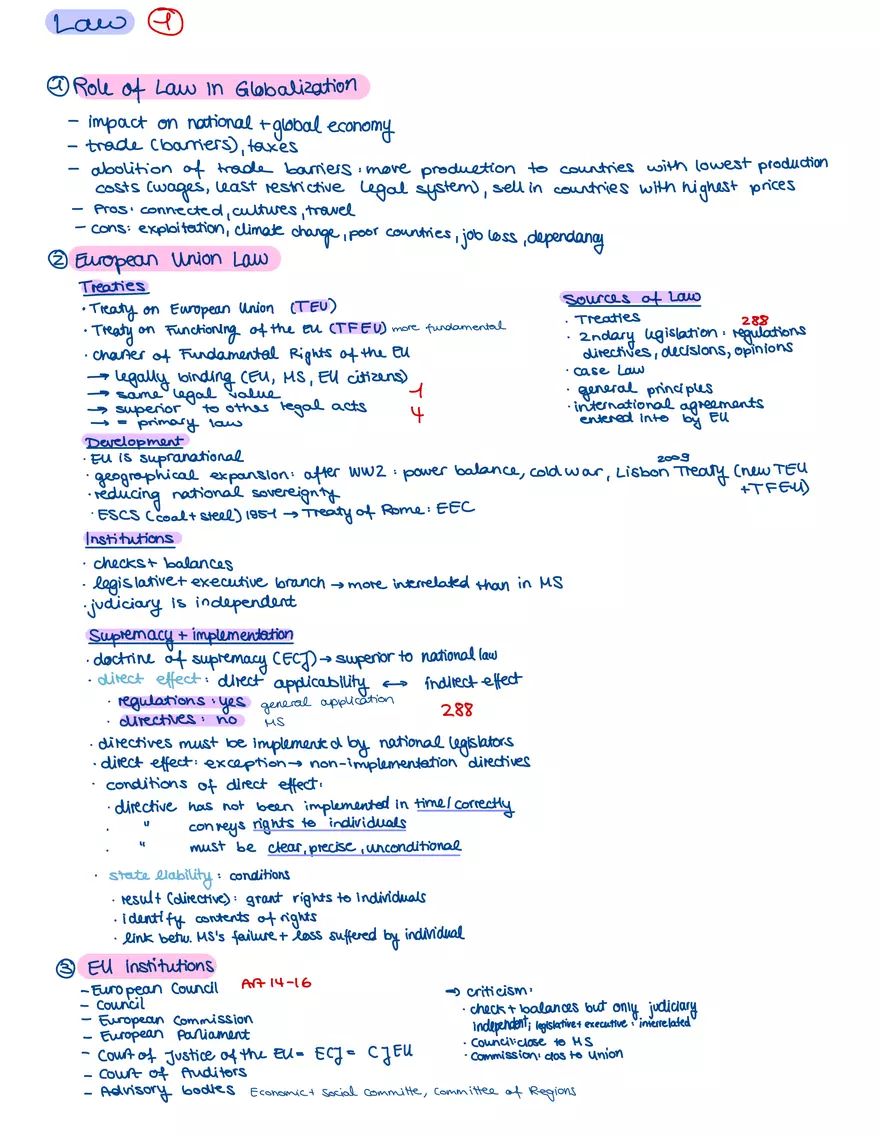 Law 1
① Role of Law in Globalization
- impact on national + global economy
- trade (barriers), taxes
- abolition of trade barriers: move production to countries with lowest production
costs (wages, least restrictive legal system), sell in countries with highest prices
- Pros: connected, cultures, travel
- cons: exploitation, climate change, poor countries, job loss, dependancy
② European Union Law
Treaties
· Treaty on European Union (TEU)
· Treaty on Functioning of the EU (TFEU) more fundamental
· charter of Fundamental Rights of the EU
→ legally binding (EU, MS, EU citizens)
→ same legal value 1
→ superior to other legal acts 4
→ = primary law
Sources of Law
· Treaties 288
· 2ndary legislation: regulations
directives, decisions, opinions
· case Law
· general principles
· international agreements
entered into by EU
Development
· EU is supranational
2009
· geographical expansion: after WW2: power balance, cold war, Lisbon Treaty (new TEU
+TFEU)
· reducing national sovereignty
· ESCS (coal + steel) 1951 → Treaty of Rome: EEC
Institutions
· checks + balances
· legislative + executive branch → more interrelated than in MS
· judiciary is independent
Supremacy + implementation
· doctrine of supremacy (ECJ) → superior to national law
· direct effect: direct applicability ↔ indirect effect
· regulations: yes general application
· directives: no MS 288
· directives must be implemented by national legislators
· direct effect: exception → non-implementation directives
· conditions of direct effect:
· directive has not been implemented in time/correctly
· " conveys rights to individuals
· " must be clear, precise, unconditional
· state liability: conditions
· result (directive): grant rights to individuals
· identify contents of rights
· link betw. MS's failure + loss suffered by individual
③ EU institutions
- European Council Art 14-16
- Council
- European Commission
- European Parliament
- Court of Justice of the EU = ECJ = CJEU
- Court of Auditors
- Advisory bodies Economic + Social Committe, Committee of Regions
→ criticism:
· check + balances but only judiciary
independent; legislative + executive: interrelated
· Council: close to MS
· Commission: clos to Union